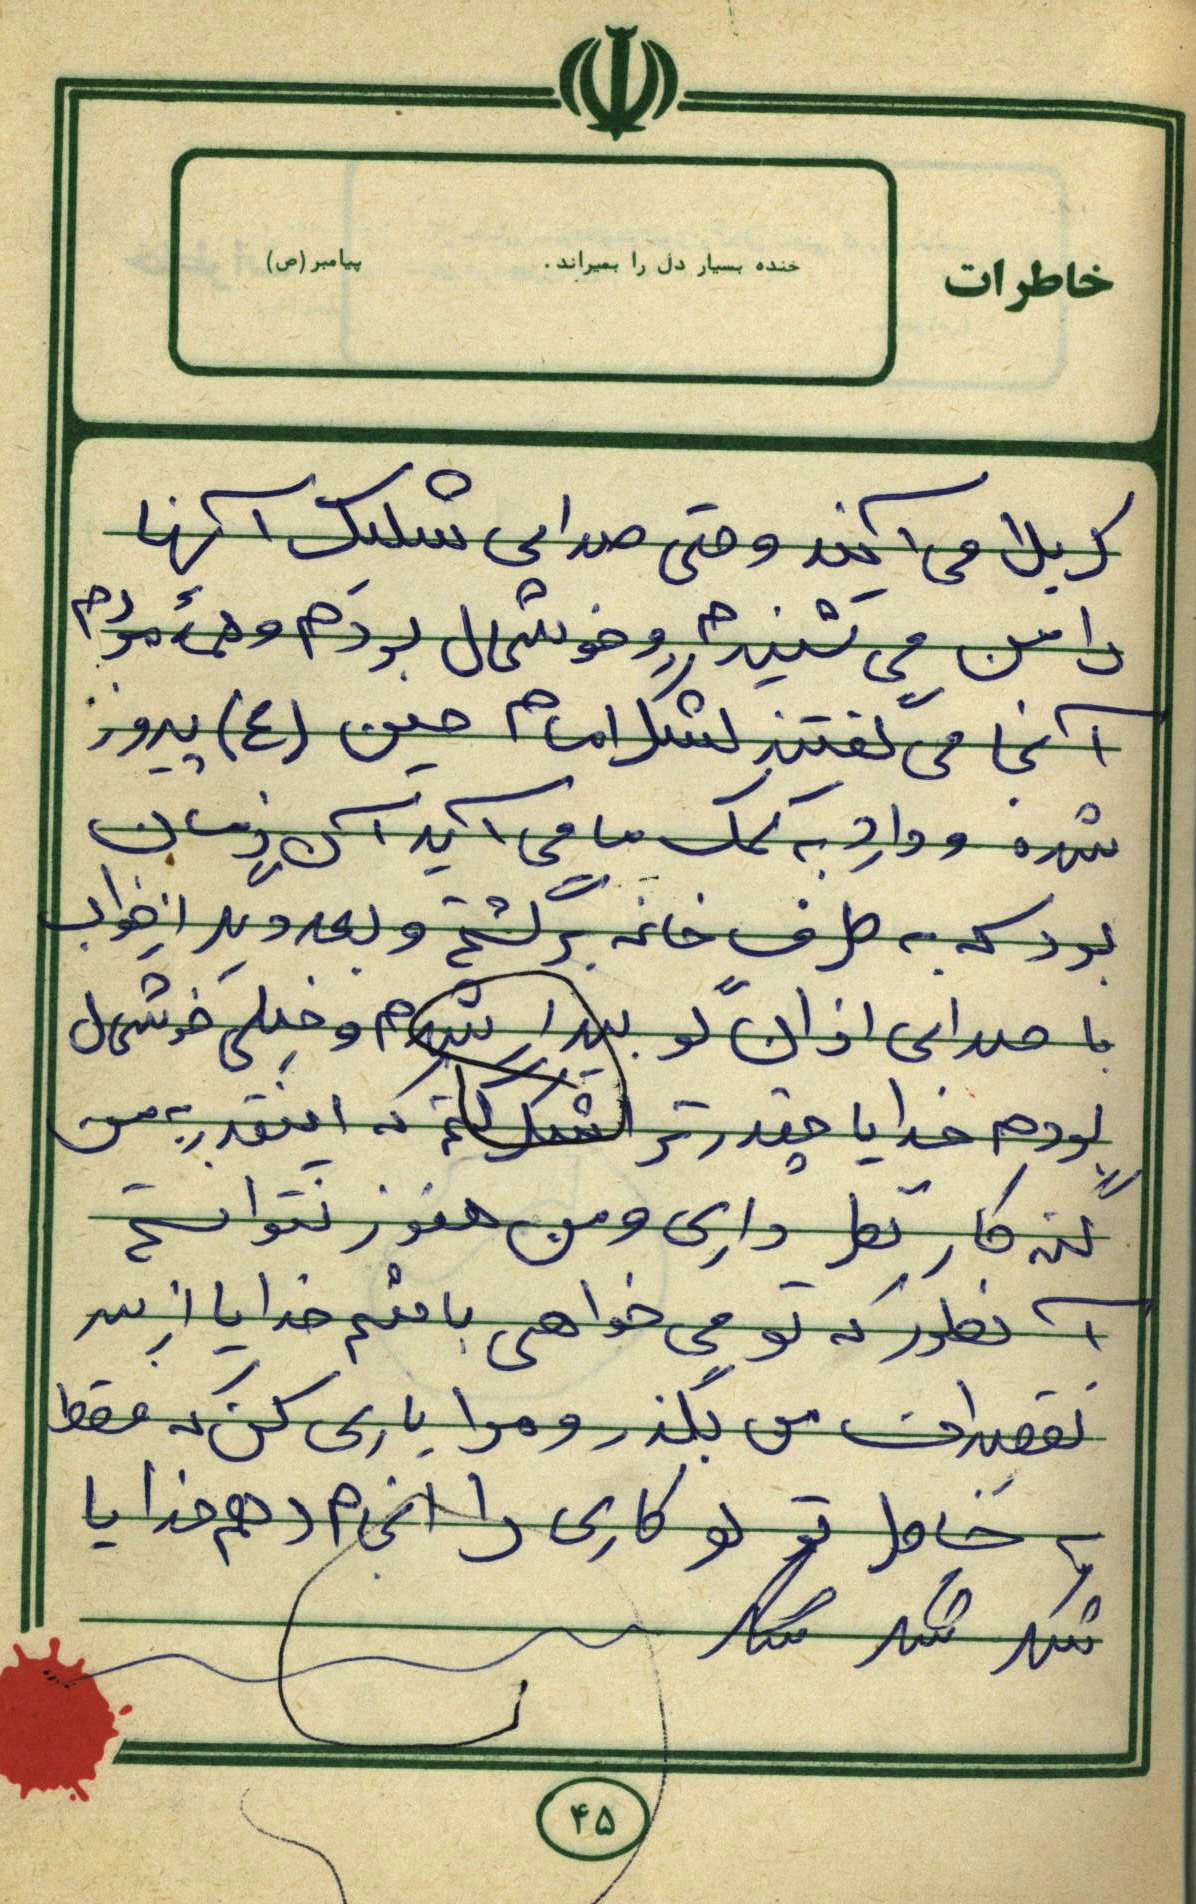 خاطرات
خنده بسیار دل را بمیراند .
پیامبر (ص)
کربلا می آیند و حتی صدای شلیک آنها
را من می شنیدم و خوشحال بودم و همهٔ مردم
آنجا می گفتند لشکر امام حسین (ع) پیروز
شده و دارد به کمک ما می آید آن زمان
بود که به طرف خانه برگشتم و بعد دید از خواب
با صدای اذان گو بیدار شدم و خیلی خوشحال
بودم خدایا چقدر تر اشکر کنم که اینقدر به من
گنه کار نظر داری و من هنوز نتوانستم
آنطور که تو می خواهی باشم خدایا از سر
تقصیرات من بگذر و مرا یاری کن که فقط
به خاطر تو تو کاری را انجام دهم خدایا
شکر شکر شکر
۴۵